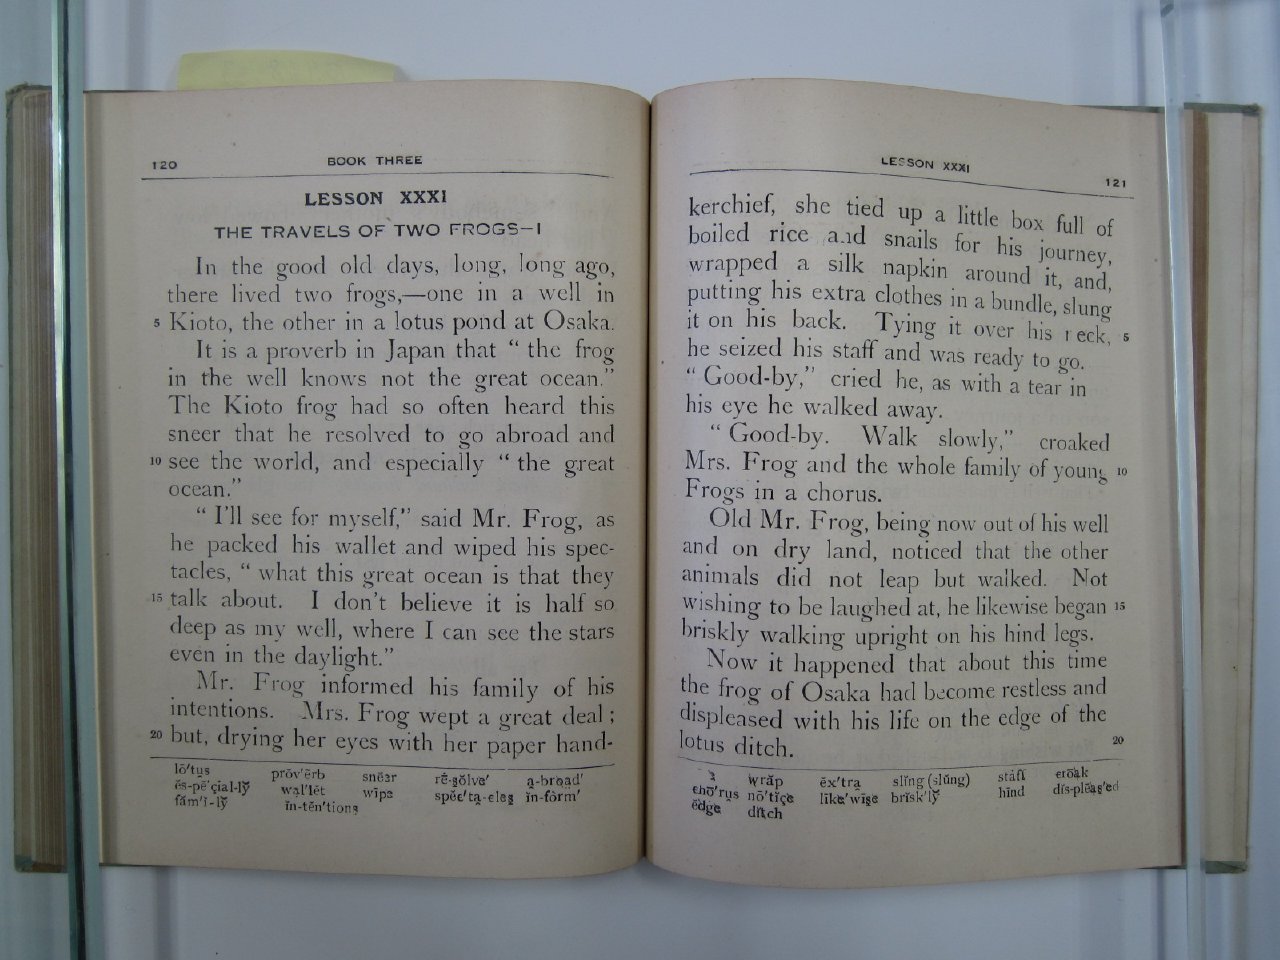 120
BOOK THREE
LESSON XXXI
THE TRAVELS OF TWO FROGS—I
In the good old days, long, long ago,
there lived two frogs,—one in a well in
5 Kioto, the other in a lotus pond at Osaka.
It is a proverb in Japan that “ the frog
in the well knows not the great ocean.”
The Kioto frog had so often heard this
sneer that he resolved to go abroad and
10 see the world, and especially “ the great
ocean.”
“ I’ll see for myself,” said Mr. Frog, as
he packed his wallet and wiped his spec-
tacles, “ what this great ocean is that they
15 talk about. I don’t believe it is half so
deep as my well, where I can see the stars
even in the daylight.”
Mr. Frog informed his family of his
intentions. Mrs. Frog wept a great deal ;
20 but, drying her eyes with her paper hand-
lō′tụs prŏv′ẽrb snēẽr rē̇-ṣŏlve′ ạ-broạd′
ĕs-pĕ′çial-lỹ wạl′lĕt wīpe spĕc′tạ-cleṣ ĭn-fôrm′
făm′ĭ-lỹ ĭn-tĕn′tionṣ
LESSON XXXI
121
kerchief, she tied up a little box full of
boiled rice and snails for his journey,
wrapped a silk napkin around it, and,
putting his extra clothes in a bundle, slung
it on his back. Tying it over his neck, 5
he seized his staff and was ready to go.
“ Good-by,” cried he, as with a tear in
his eye he walked away.
“ Good-by. Walk slowly,” croaked
Mrs. Frog and the whole family of young 10
Frogs in a chorus.
Old Mr. Frog, being now out of his well
and on dry land, noticed that the other
animals did not leap but walked. Not
wishing to be laughed at, he likewise began 15
briskly walking upright on his hind legs.
Now it happened that about this time
the frog of Osaka had become restless and
displeased with his life on the edge of the
lotus ditch. 20
wrăp ĕx′trạ slĭng (slŭng) stȧff crōak
chō′rụs nō′tĭçe līke′wīṣe brĭsk′lỹ hīnd dĭs-plēaṣ′ed
ĕdge dĭtch